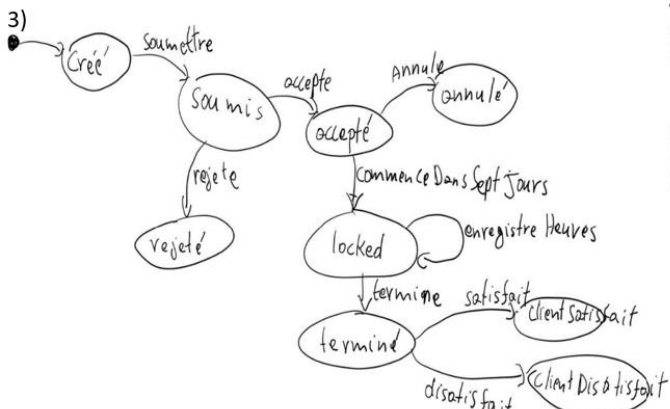 3)
Créé
soumettre
Soumis
accepte
accepté
Annule
annulé
rejete
rejeté
commenceDansSeptJours
locked
enregistre Heures
termine
terminé
satisfait
clientSatisfait
disatisfait
clientDisatisfait